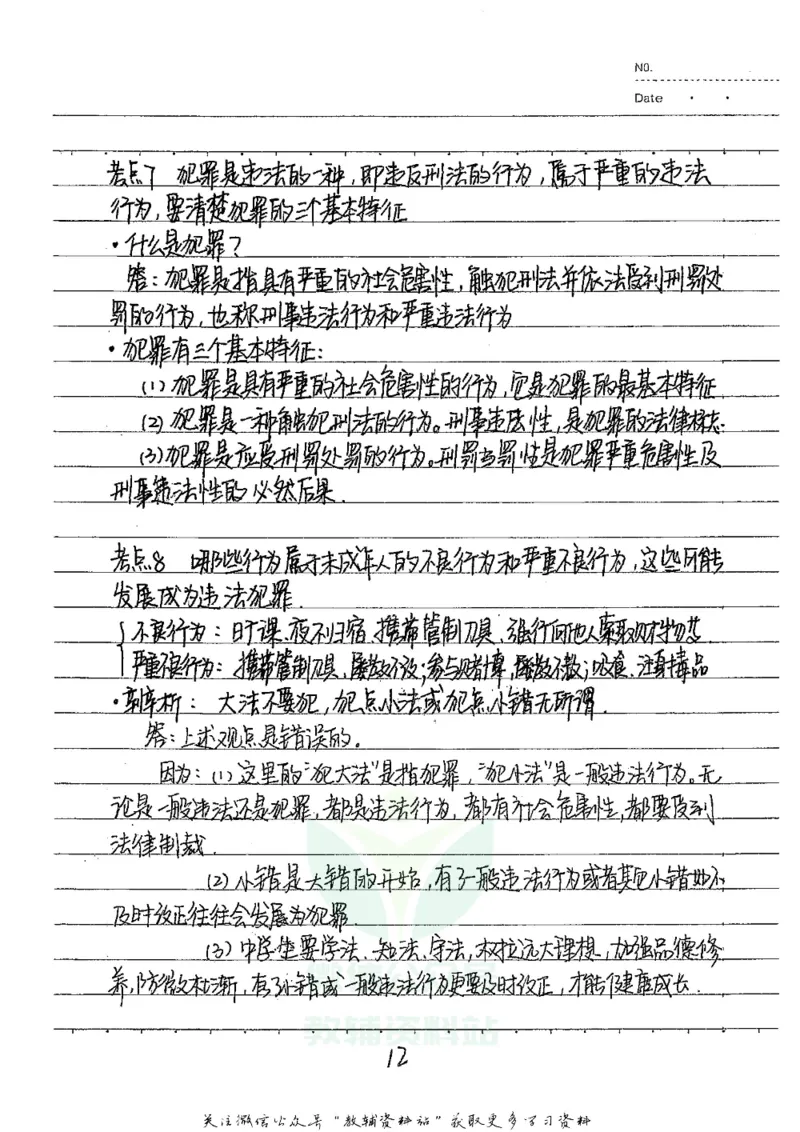 NO.
Date
考点7 犯罪是违法的一种，即违反刑法的行为，属于严重的违法
行为，要清楚犯罪的三个基本特征
·什么是犯罪？
答：犯罪是指具有严重的社会危害性，触犯刑法并依法受到刑罚处
罚的行为，也称刑事违法行为和严重违法行为
·犯罪有三个基本特征：
(1)犯罪是具有严重的社会危害性的行为，它是犯罪的最基本特征.
(2)犯罪是一种触犯刑法的行为。刑事违法性，是犯罪的法律标志.
(3)犯罪是应受刑罚处罚的行为。刑罚当罚性是犯罪严重危害性及
刑事违法性的必然后果.
考点8 哪些行为属于未成年人的不良行为和严重不良行为，这些可能
发展成为违法犯罪.
不良行为：旷课.夜不归宿.携带管制刀具.强行向他人索取财物等
严重不良行为：携带管制刀具，屡教不改；参与赌博，屡教不改；吸食.注射毒品
·辨析：大法不要犯，犯点小法或犯点小错无所谓.
答：上述观点是错误的。
因为：(1)这里的“犯大法”是指犯罪，“犯小法”是一般违法行为。无
论是一般违法还是犯罪，都是违法行为，都有社会危害性，都要受到
法律制裁.
(2)小错是大错的开始，有了一般违法行为或者其它小错如不
及时改正往往会发展为犯罪.
(3)中学生要学法、知法、守法，树立远大理想，加强品德修
养，防微杜渐，有了小错或一般违法行为更要及时改正，才能健康成长.
教辅资料站
12
关注微信公众号“教辅资料站”获取更多学习资料